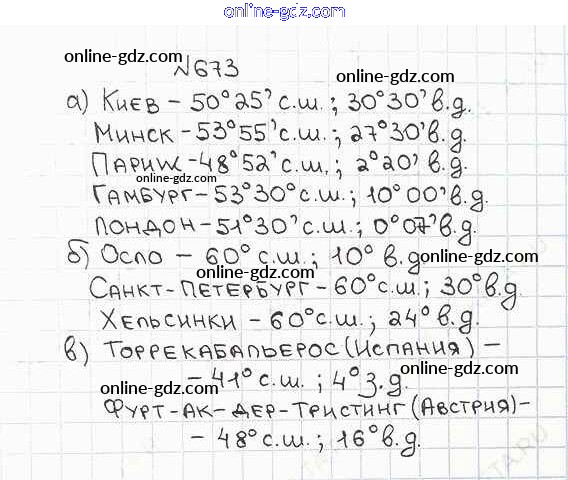 online-gdz.com
online-gdz.com
№673
online-gdz.com
а) Киев – 50°25' с.ш.; 30°30' в.д.
online-gdz.com
Минск – 53°55' с.ш.; 27°30' в.д.
Париж – 48°52' с.ш.; 2°20' в.д.
online-gdz.com
Гамбург – 53°30° с.ш.; 10°00' в.д.
online-gdz.com
Лондон – 51°30' с.ш.; 0°07' в.д.
б) Осло – 60° с.ш.; 10° в.д.
online-gdz.com
online-gdz.com
Санкт-Петербург – 60° с.ш.; 30° в.д.
Хельсинки – 60° с.ш.; 24° в.д.
online-gdz.com
в) Торрекабальерос (Испания) –
– 41° с.ш.; 4° з.д.
online-gdz.com
online-gdz.com
Фурт-ак-дер-Тристинг (Австрия) –
– 48° с.ш.; 16° в.д.
online-gdz.com